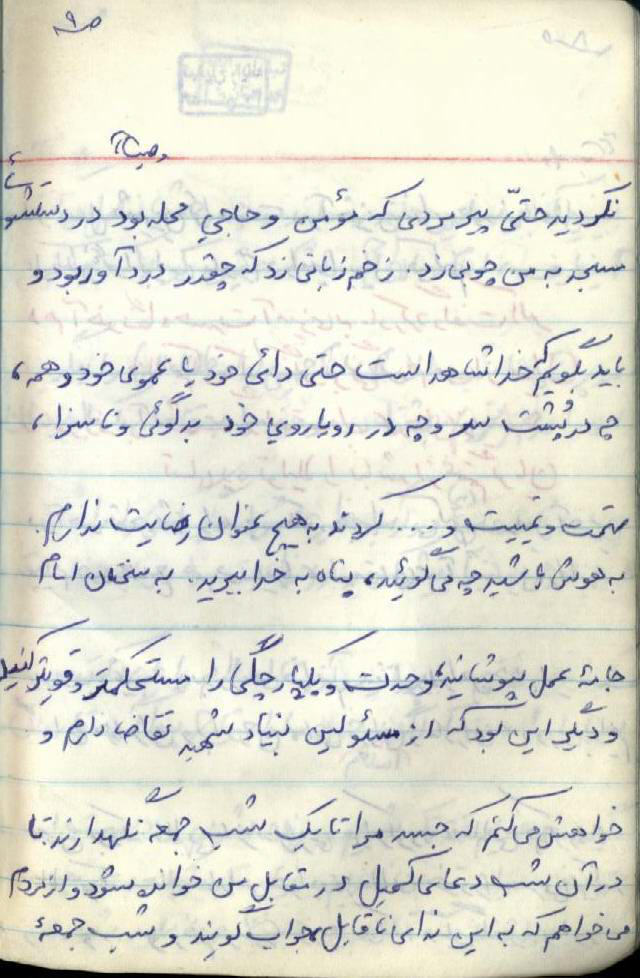 ص ۹
نکردید حتّی پیرمردی که مؤمن و حاجی محله بود در دستشوئی
مسجد به من چوبی زد. زخم زبانی زد که چقدر دردآور بود و
باید بگویم که خدا شاهد است حتی دائی خود یا عموی خود و همه،
چه در پُشت سر و چه در رویاروی خود بدگوئی و ناسزا،
تهمت و غیبت و .... کردند به هیچ عنوان رضایت ندارم.
به هوش باشید چه می‌گوئید، پناه به خدا ببرید. به سخنان امام
جامهٔ عمل بپوشانید، وحدت و یکپارچگی را مستحکمتر و قویتر کنید
و دیگر این بود که از مسئولین بنیاد شهید تقاضا دارم و
خواهش می‌کنم که جسد مرا تا یک شب جمعه نگهدارند تا
در آن شب دعای کمیل در مقابل من خوانده شود و از مردم
می‌خواهم که به این ندای ناقابل جواب گویند و شب جمعهٔ